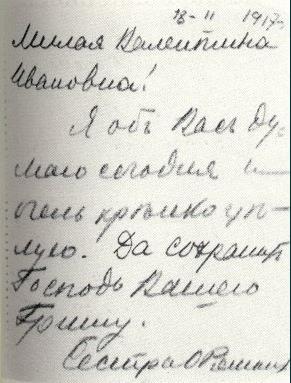 18-II 1917г
Милая Валентина
Ивановна!
Я объ Васъ ду-
маю сегодня и
очень крѣпко цѣ-
лую. Да сохранитъ
Господь Вашего
Гришу.
Сестра О